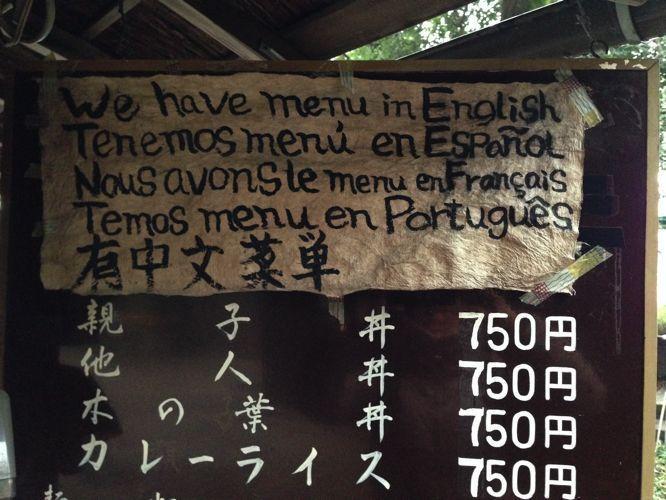 We have menu in English
Tenemos menú en Español
Nous avons le menu en Français
Temos menu en Português
有中文菜単
親子丼 750円
他人丼 750円
木の葉丼 750円
カレーライス 750円